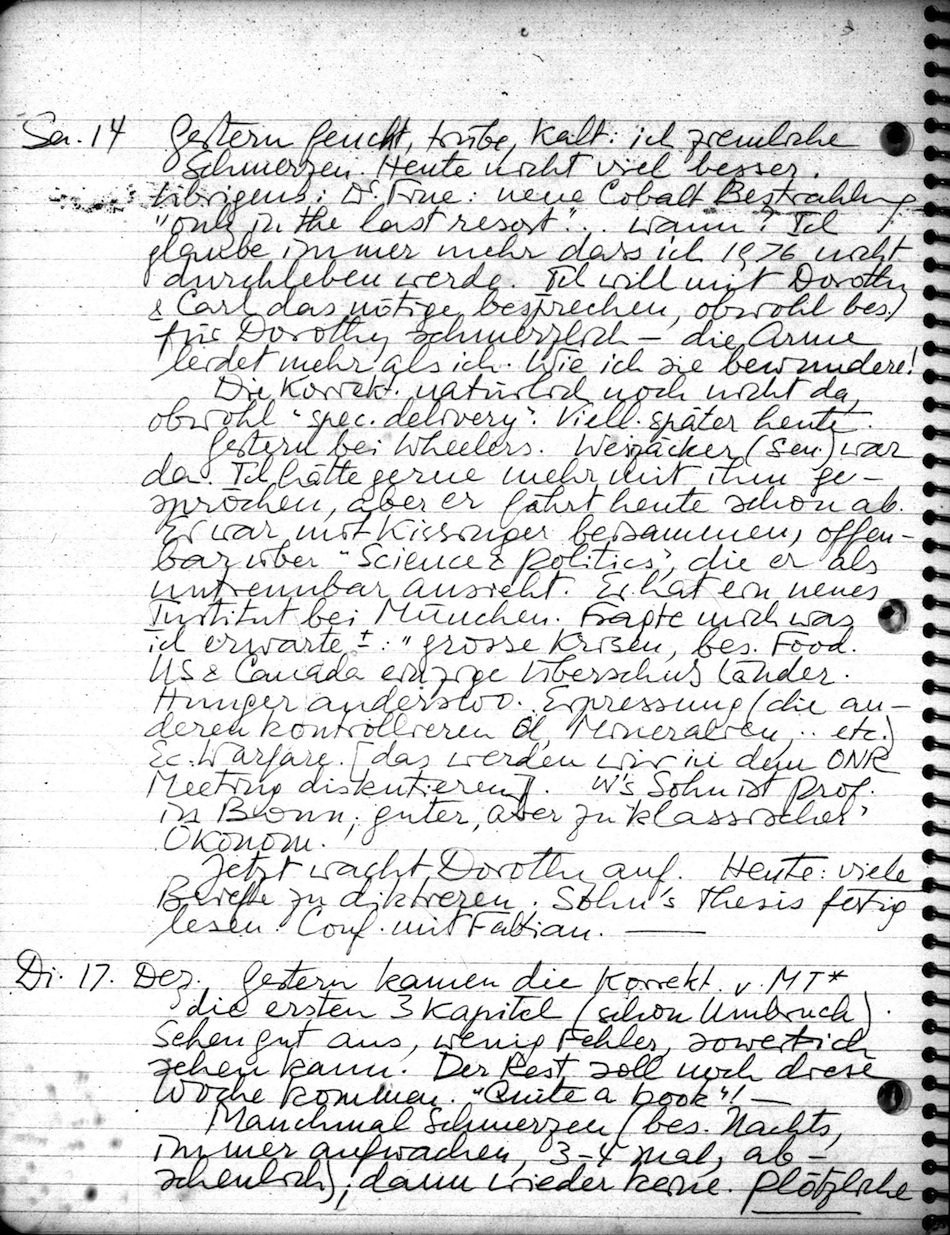 Sa. 14 Gestern feucht, trübe, kalt: ich ziemliche
Schmerzen. Heute nicht viel besser.
Übrigens: Dr. Fine: neue Cobalt Bestrahlung
"only in the last resort"... wann? Ich
glaube immer mehr dass ich 1976 nicht
durchleben werde. Ich will mit Dorothy
& Carl das nötige besprechen, obwohl bes.
für Dorothy schmerzlich – die Arme
leidet mehr als ich. Wie ich sie bewundere!
Die Korrekt. natürlich noch nicht da,
obwohl "spec. delivery". Viell. später heute.
Gestern bei Wheelers. Weizäcker (sen.) war
da. Ich hätte gerne mehr mit ihm ge-
sprochen, aber er fährt heute schon ab.
Er war mit Kissinger beisammen, offen-
bar über "Science & politics", die er als
untrennbar ansieht. Er hat ein neues
Institut bei München. Fragte mich was
ich erwarte ±: "grosse Krisen, bes. Food.
US & Canada einzige Überschuß Länder.
Hunger anderswo. Erpressung (die an-
deren kontrollieren Öl, Mineralien, .. etc.)
Ec. Warfare. [das werden wir in dem ONR
Meeting diskutieren]. W's Sohn ist Prof.
in Bonn; guter, aber zu "klassischer"
Ökonom.
Jetzt wacht Dorothy auf. Heute: viele
Briefe zu diktieren. Sohn's Thesis fertig
lesen. Conf. mit Fabian. —
Di. 17. Dez. Gestern kamen die Korrekt. v. MT*
die ersten 3 Kapitel (schon Umbruch).
Sehen gut aus, wenig Fehler, soweit ich
sehen kann. Der Rest soll noch diese
Woche kommen. "Quite a book"! —
Manchmal Schmerzen (bes. Nachts,
immer aufwachen, 3-4 mal, ab-
scheulich), dann wieder keine. Plötzliche